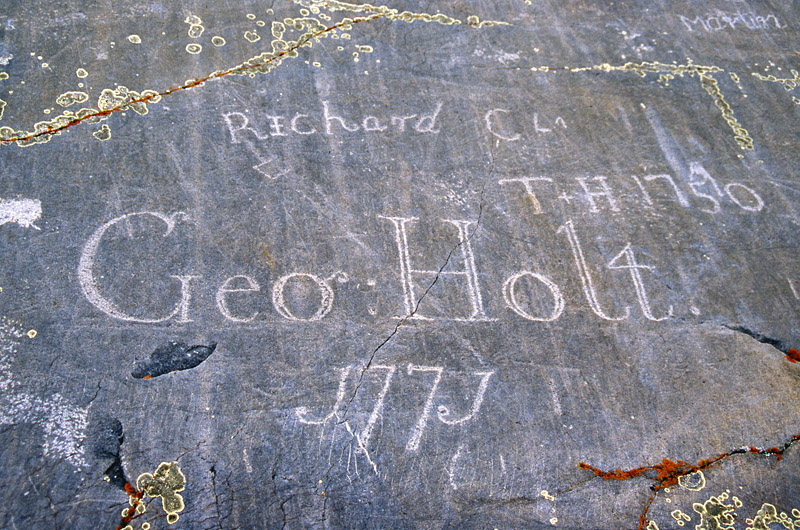 Martin
Richard C
T+H 1750
Geor: Holt.
1771